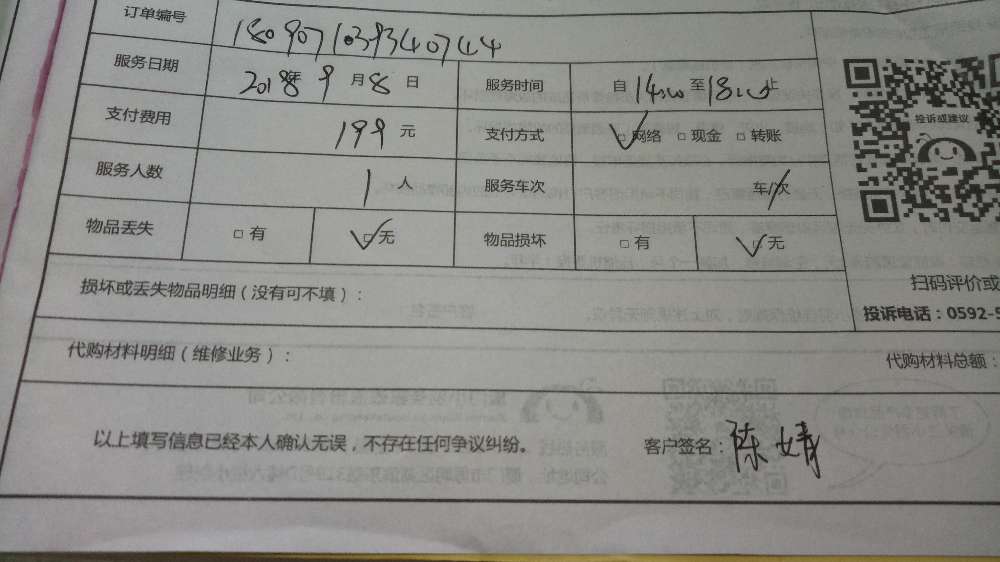 订单编号 1809071039340744
服务日期 2018年9月8日 服务时间 自14:00至18:00止
支付费用 199元 支付方式 □网络 □现金 □转账
服务人数 1人 服务车次 车/次
物品丢失 □有 □无 物品损坏 □有 □无
投诉或建议
损坏或丢失物品明细（没有可不填）：
扫码评价或
投诉电话：0592-5
代购材料明细（维修业务）： 代购材料总额：
以上填写信息已经本人确认无误，不存在任何争议纠纷。 客户签名：陈婧